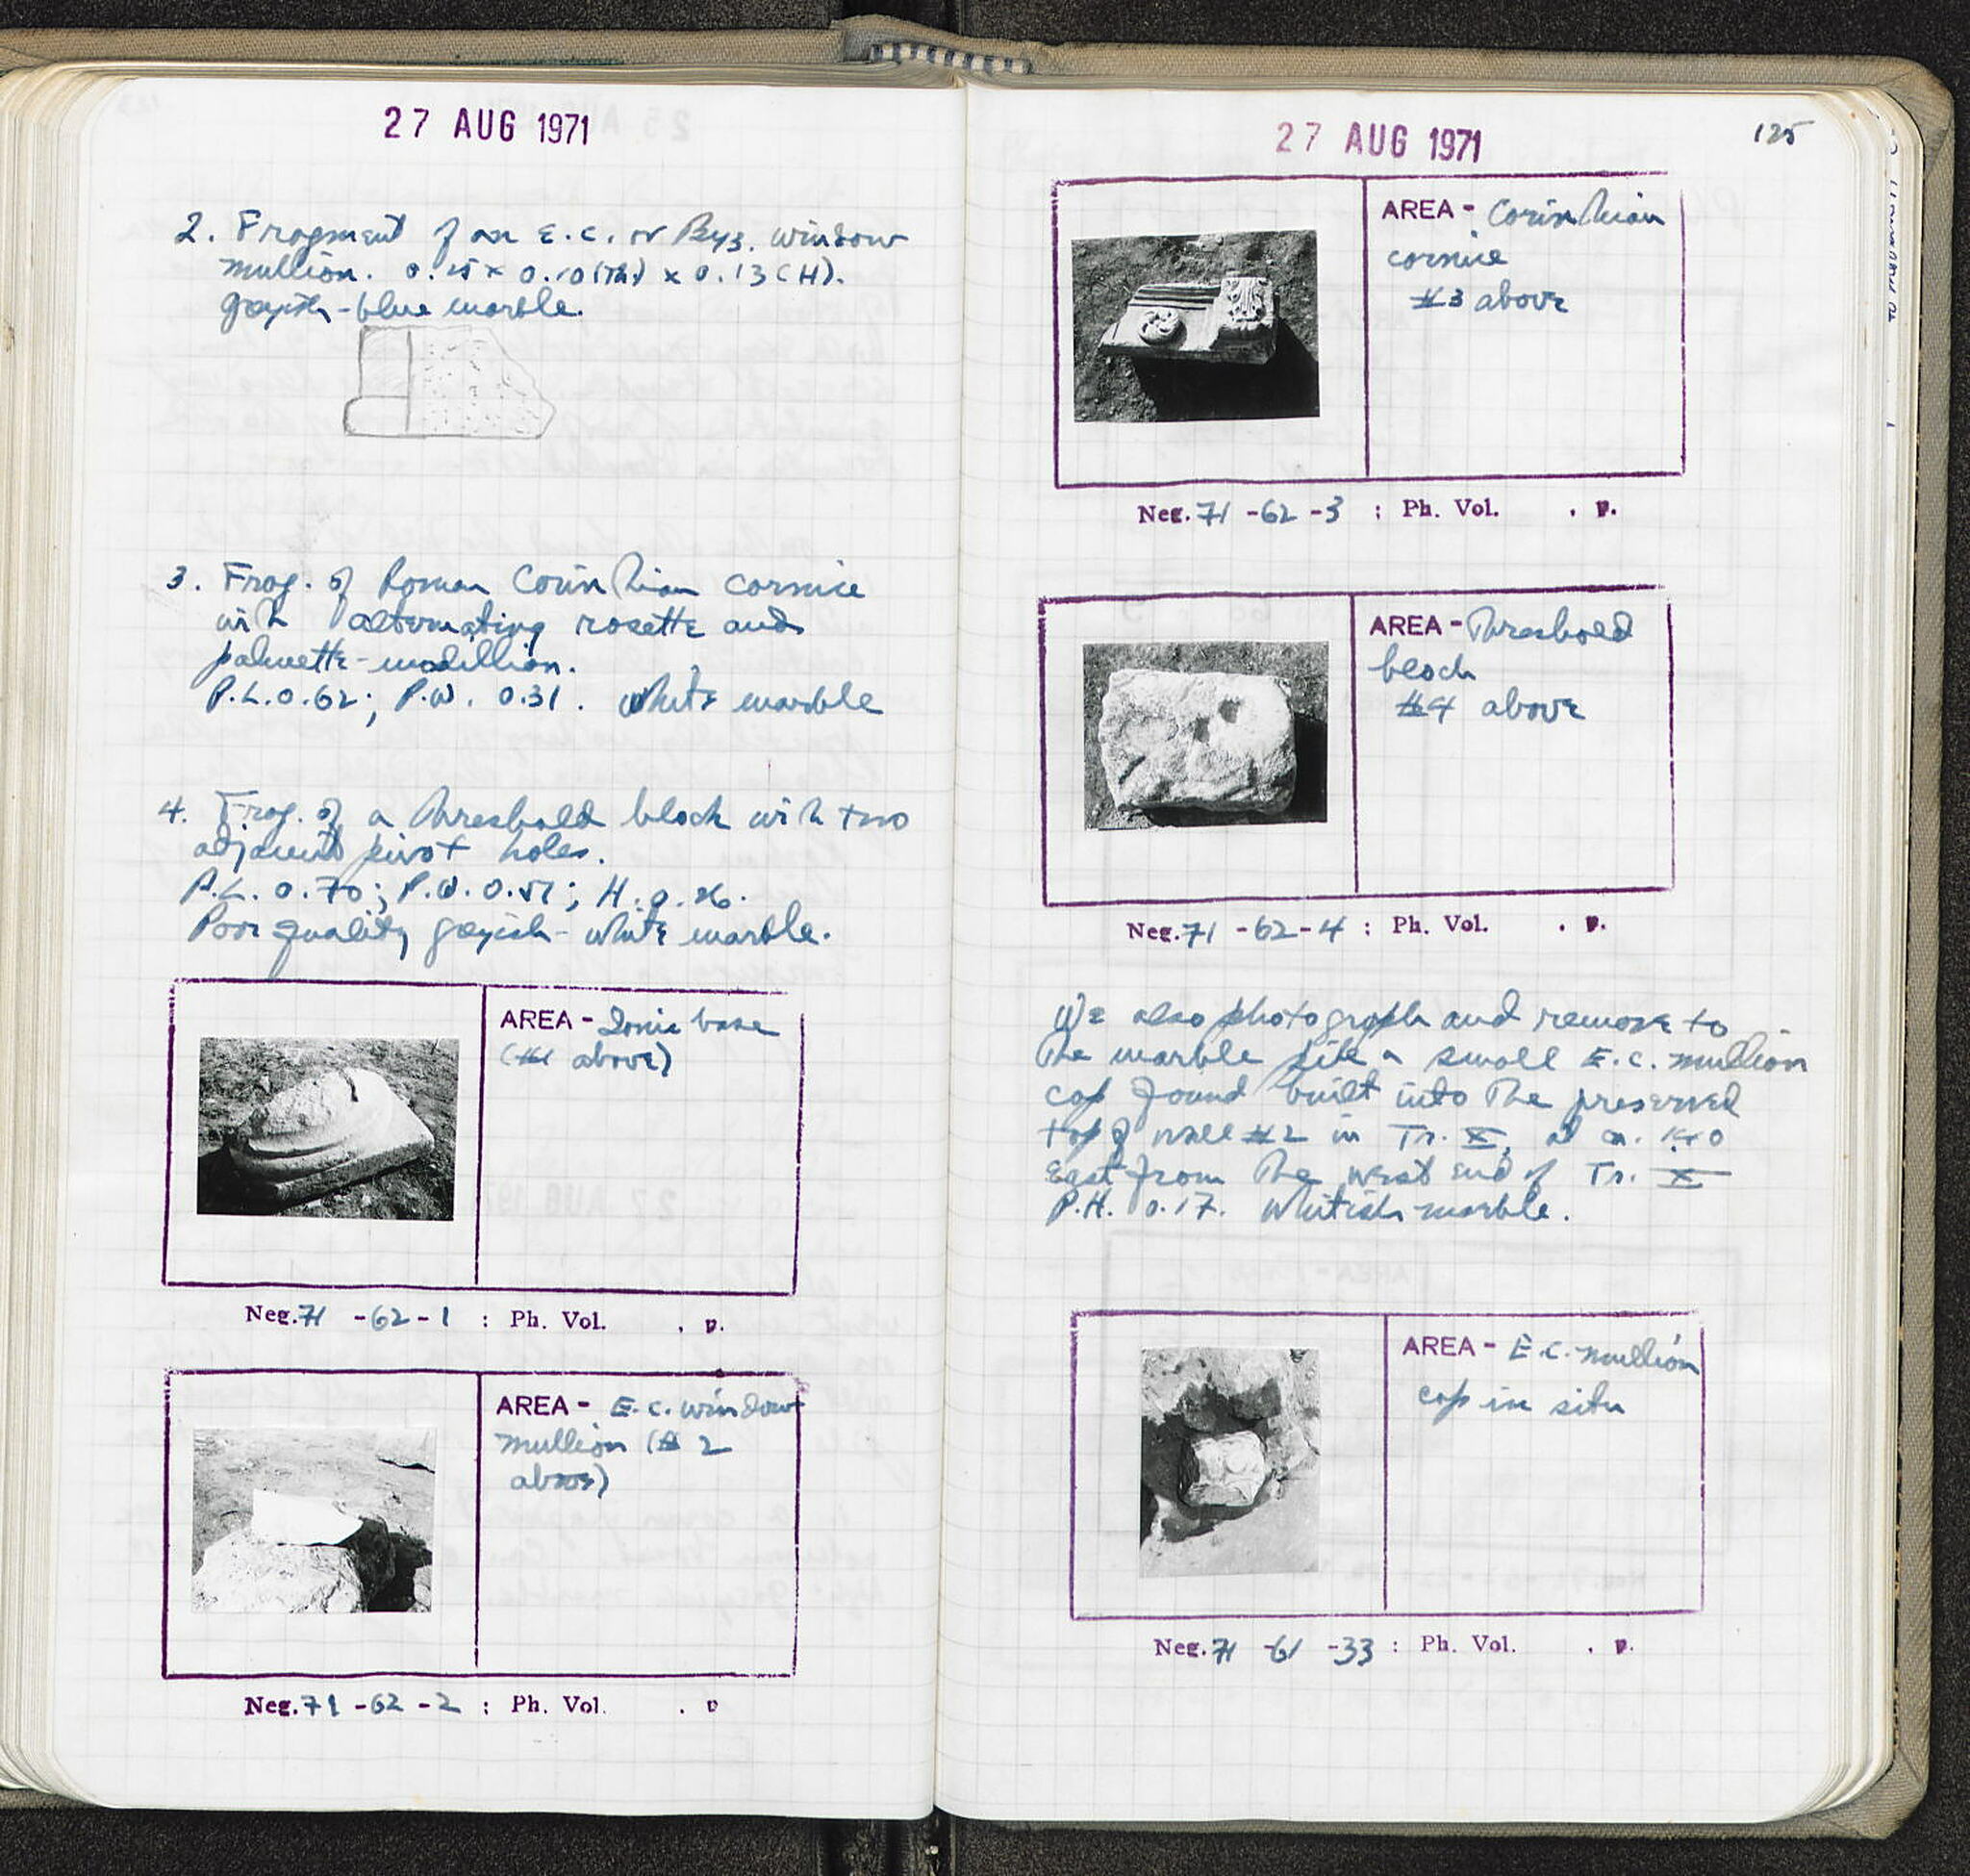 27 AUG 1971
2. Fragment of an E.C. or Byz. window
mullion. 0.25 x 0.10 (Th.) x 0.13 (H).
greyish-blue marble.
3. Frag. of Roman Corinthian cornice
with alternating rosette and
palmette-modillion.
P.L. 0.62; P.W. 0.31. White marble
4. Frag. of a threshold block with two
adjacent pivot holes.
P.L. 0.70; P.W. 0.51; H. 0.26.
Poor quality greyish-white marble.
AREA - Ionic base
(#1 above)
Neg. 71 - 62 - 1 : Ph. Vol. , p.
AREA - E.C. window
mullion (# 2
above)
Neg. 71 - 62 - 2 : Ph. Vol. . p
27 AUG 1971
125
AREA - Corinthian
cornice
#3 above
Neg. 71 - 62 - 3 : Ph. Vol. . p.
AREA - Threshold
block
#4 above
Neg. 71 - 62 - 4 : Ph. Vol. . p.
We also photograph and remove to
the marble pile a small E.C. mullion
cap found built into the preserved
top of wall #2 in Tr. X, at ca.
East from the west end of Tr. X
P.H. 0.17. Whitish marble.
AREA - E.C. mullion
cap in situ
Neg. 71 - 61 - 33 : Ph. Vol. . p.